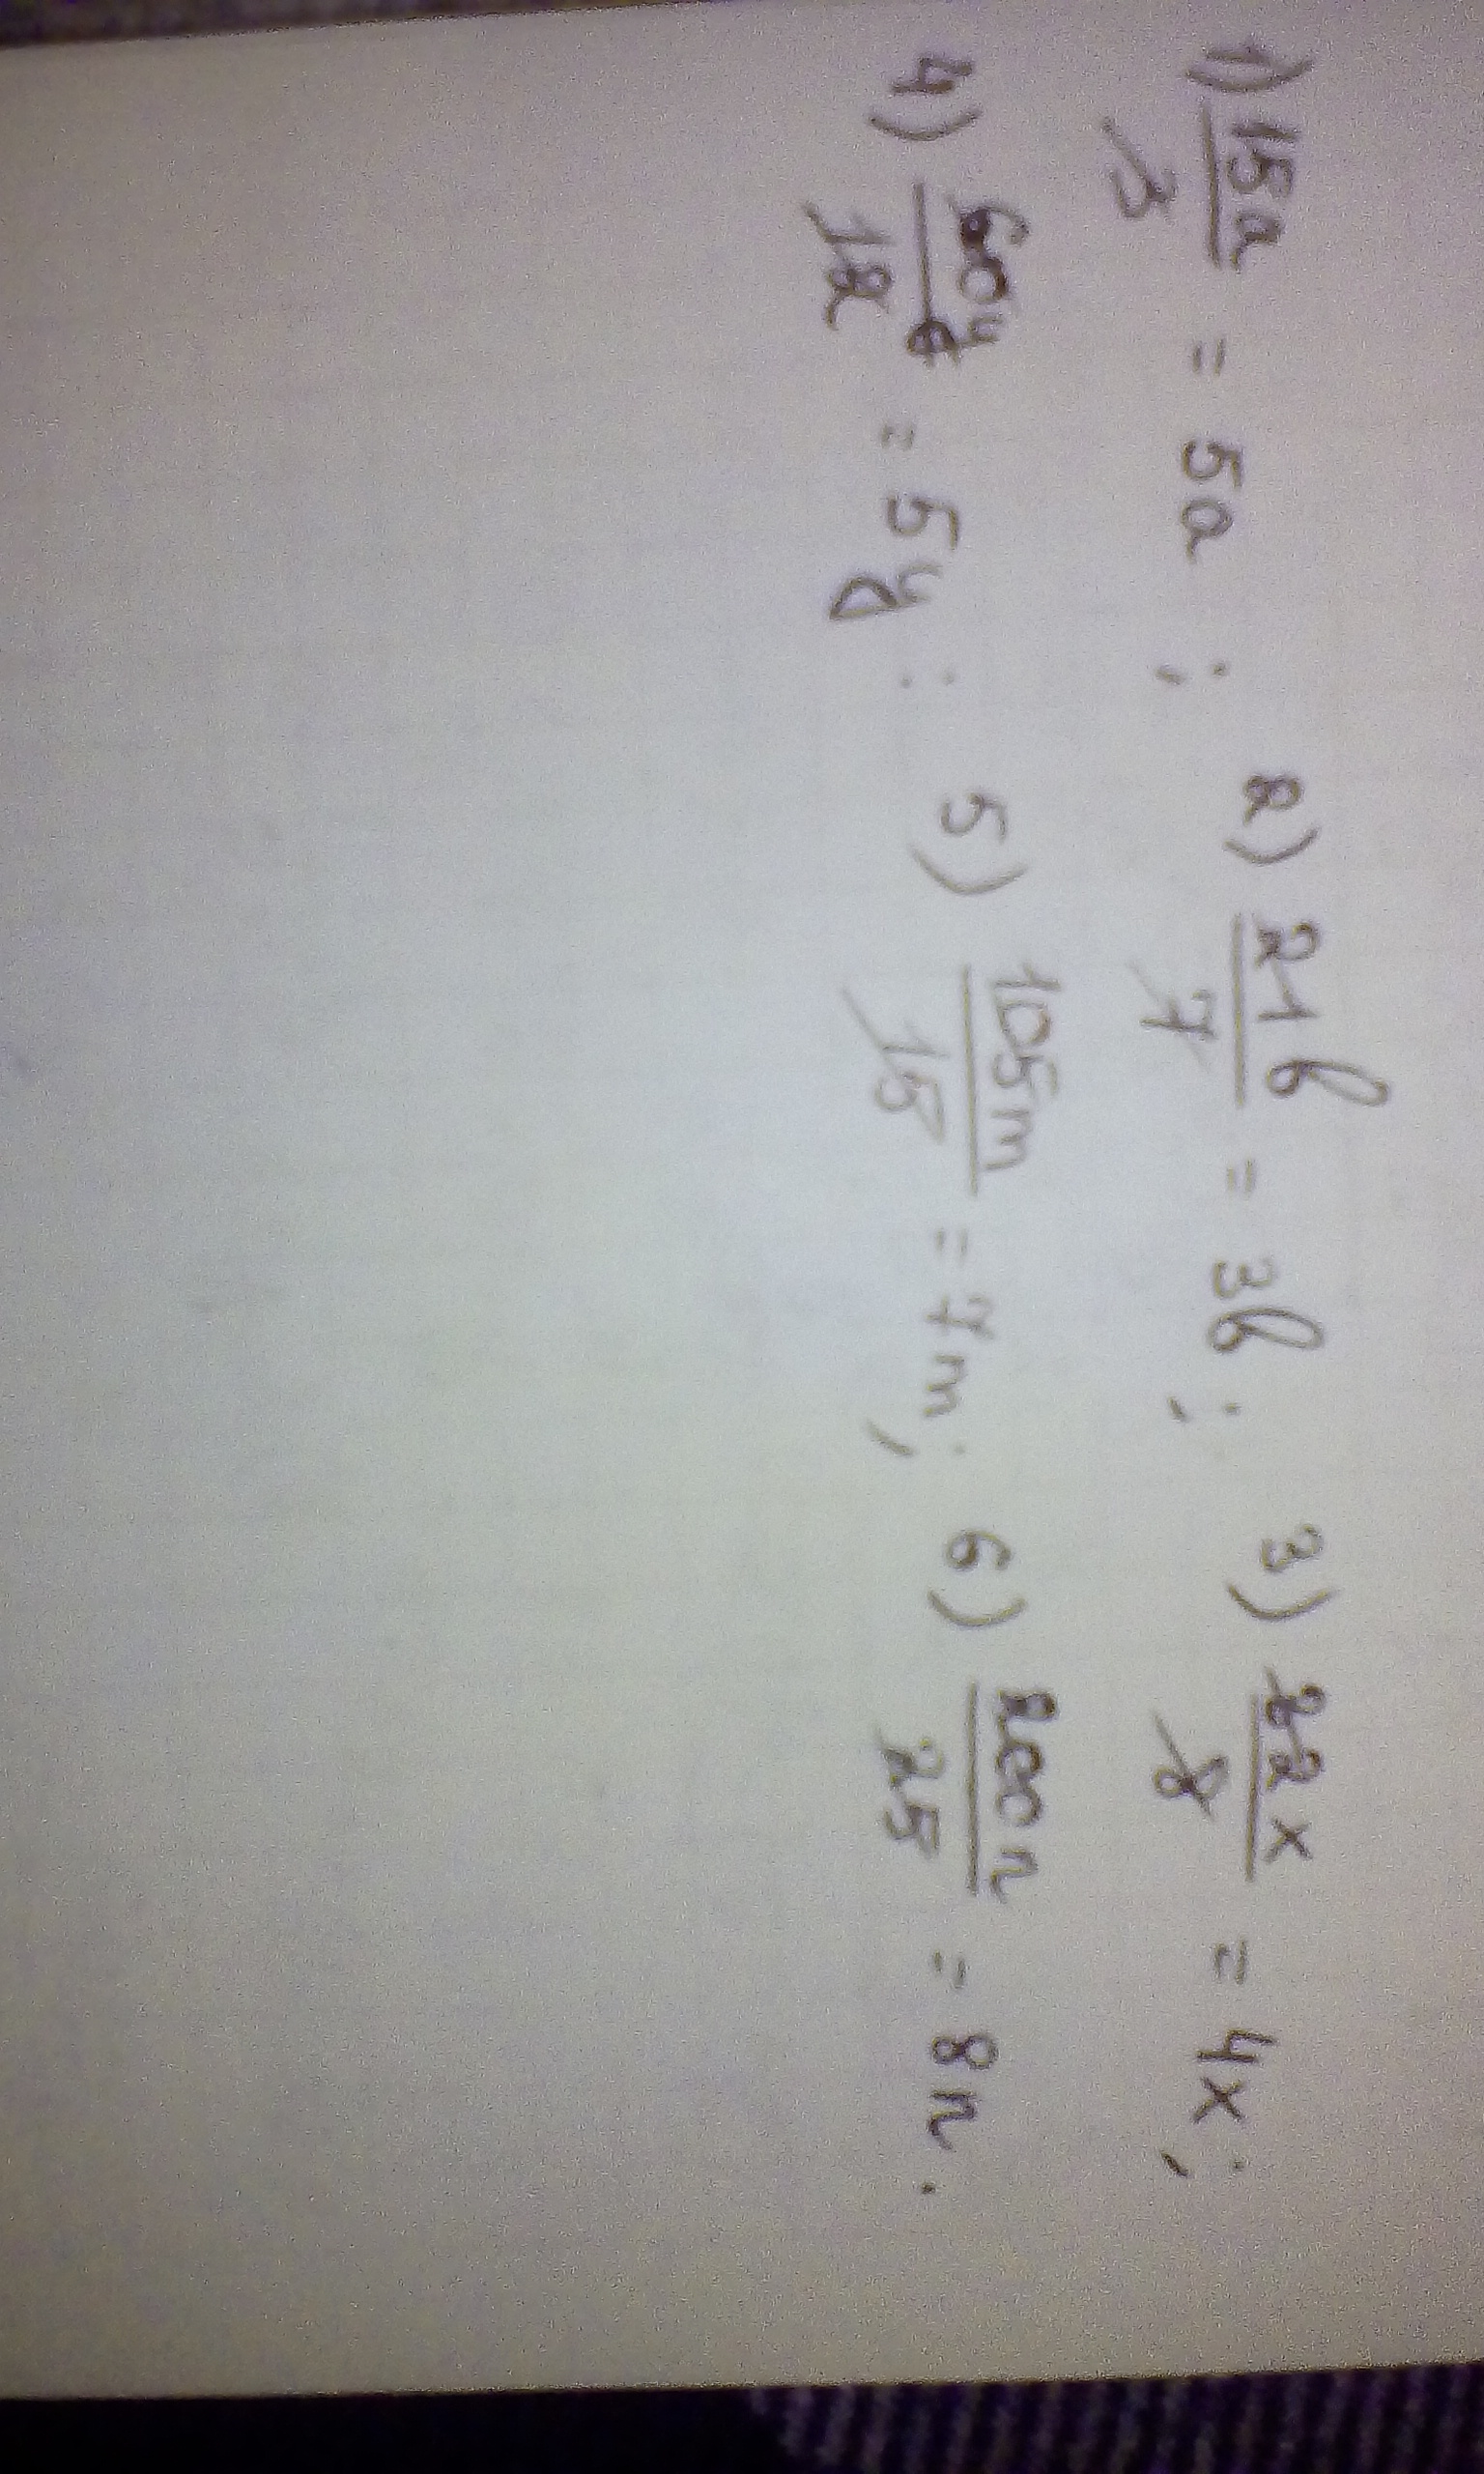 1) 15a/3 = 5a ; 2) 21b/7 = 3b ; 3) 22x/8 = 4x ;
4) 60y/12 = 5y ; 5) 105m/15 = 7m ; 6) 200n/25 = 8n .